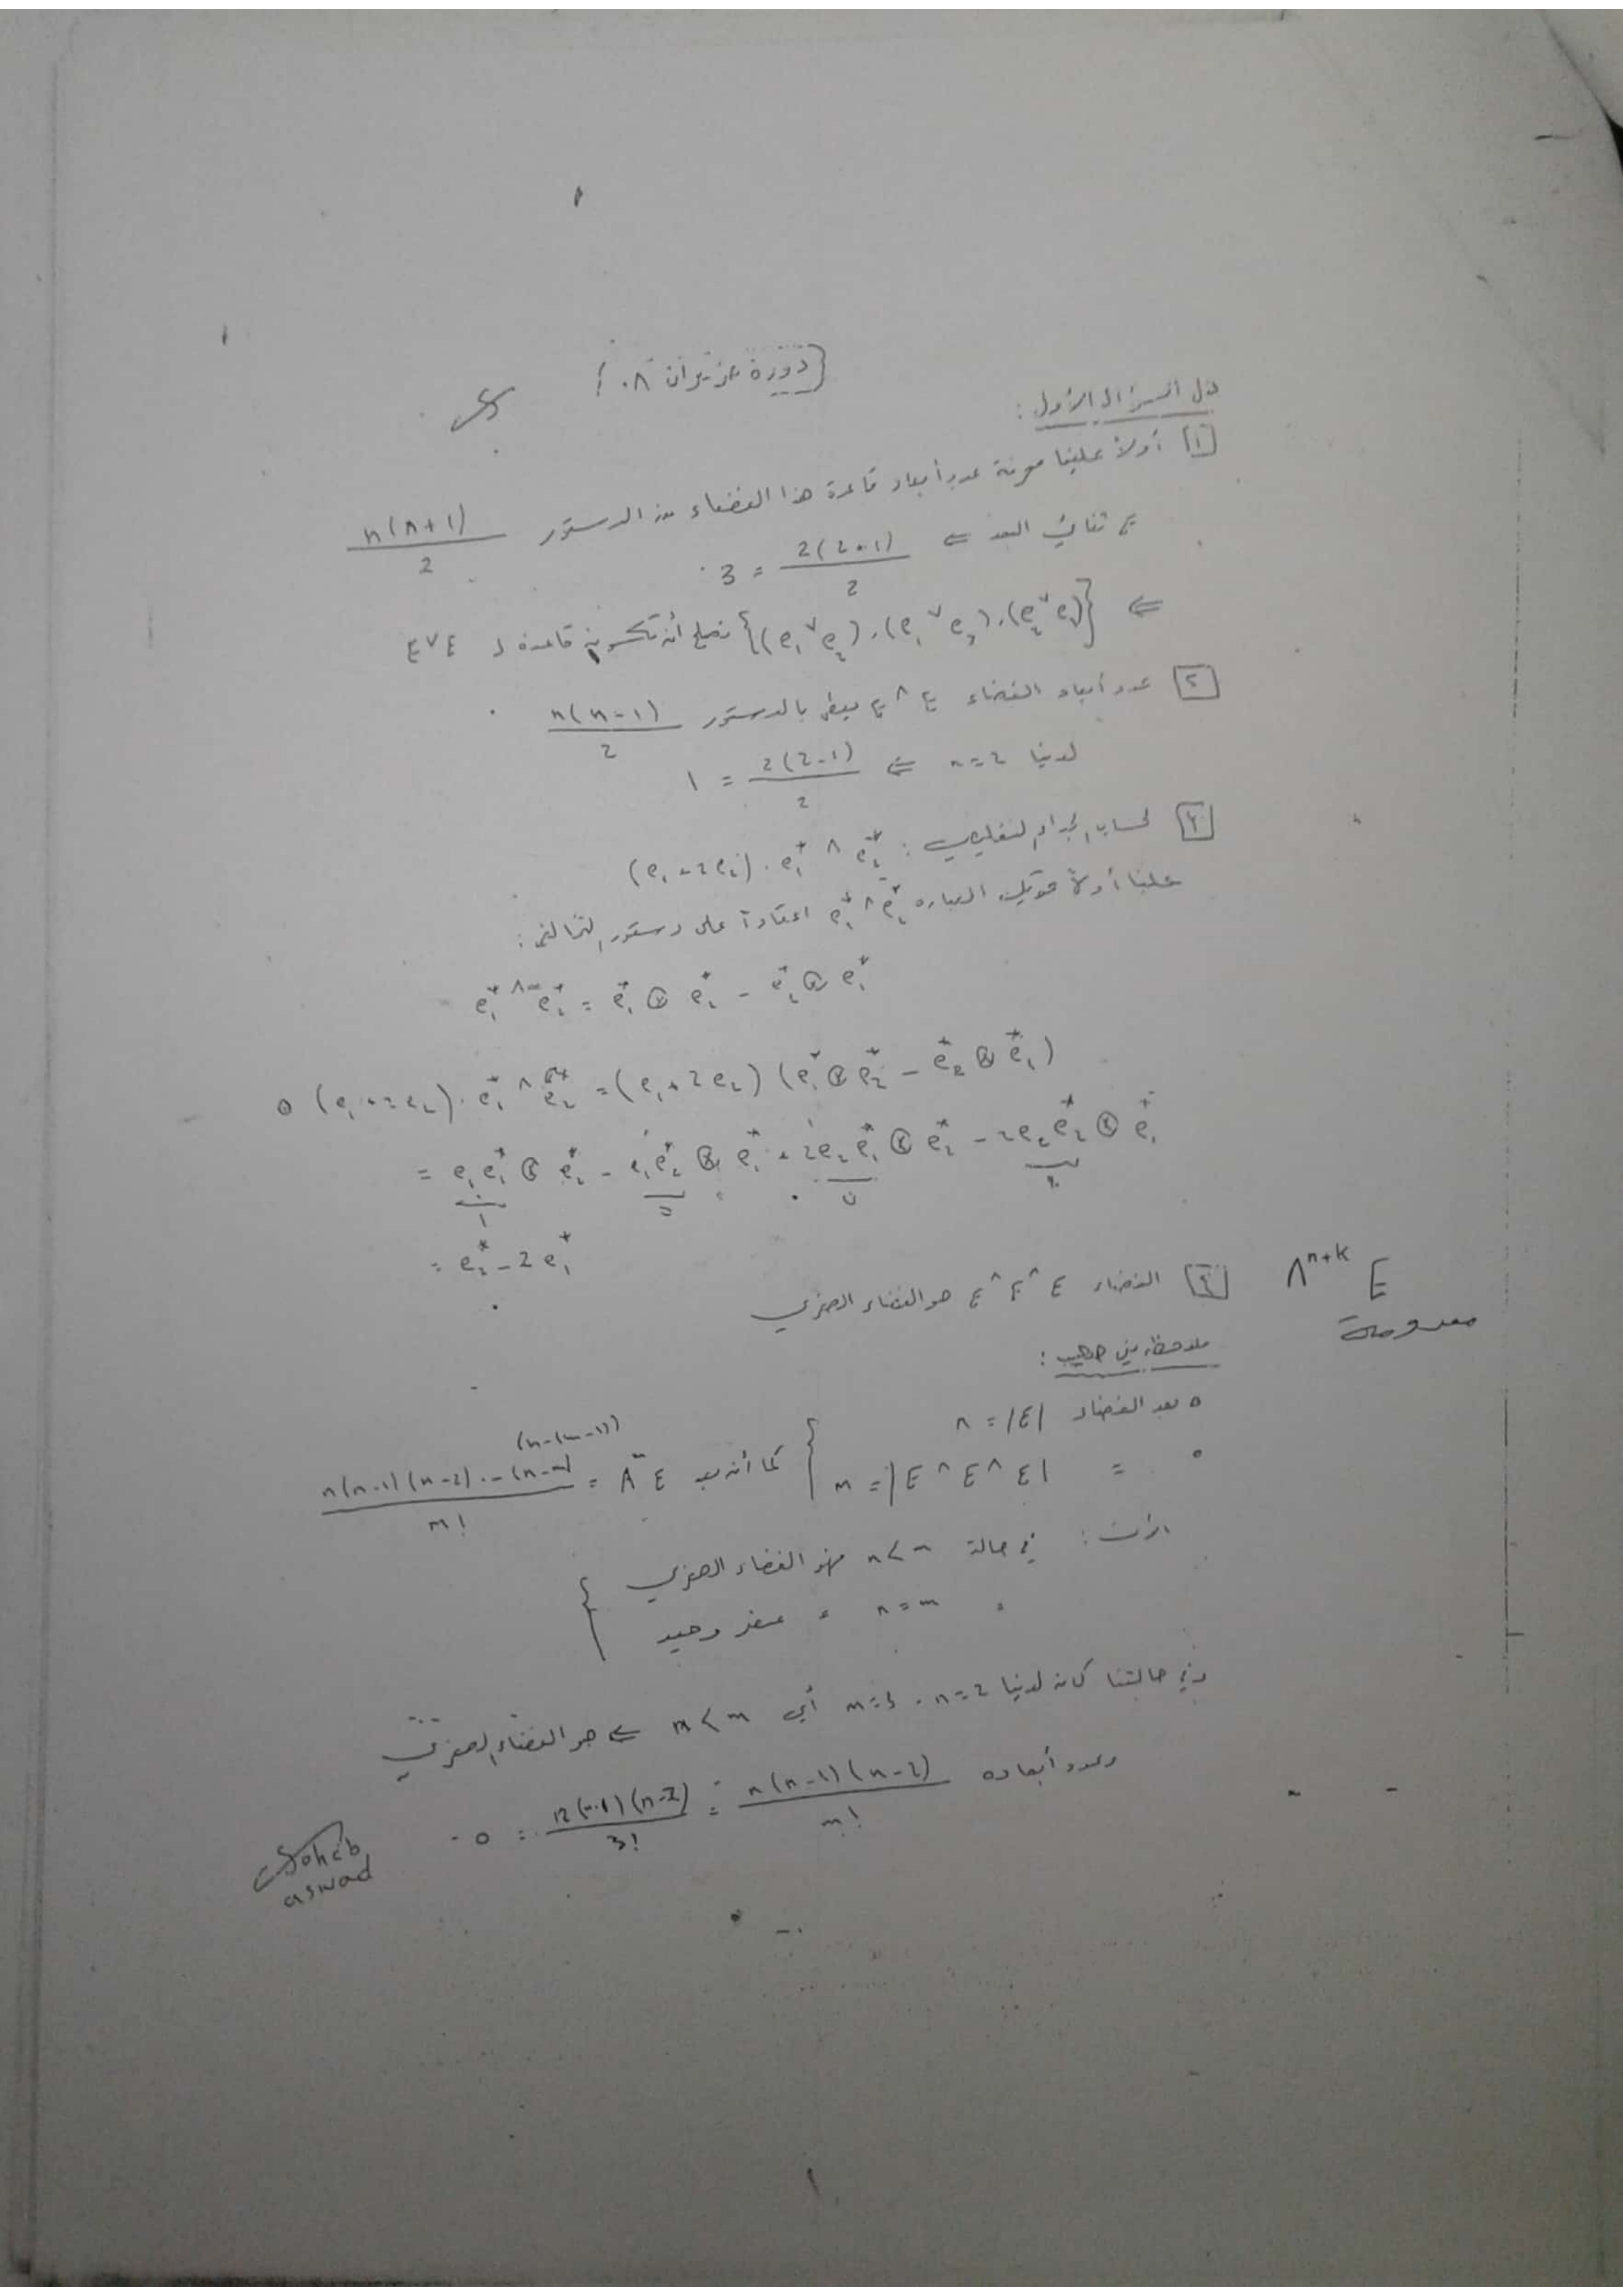 {دورة حزيران ٠٨}
حل السؤال الأول :
[١] أولاً علينا معرفة عدد أبعاد قاعدة هذا الفضاء من الدستور n(n+1)/2
E ثنائي البعد ⇐ 2(2+1)/2 = 3 .
⇐ {(e₁ ∨ e₂) , (e₁ ∨ e₁) , (e₂ ∨ e₂)} تصلح أن تكون قاعدة لـ E ∨ E
[٢] عدد أبعاد الفضاء E ∧ E يعطى بالدستور n(n-1)/2 .
لدينا n=2 ⇐ 2(2-1)/2 = 1
[٣] لحساب الجداء التقليصي : (e₁+2e₂) . e₁* ∧ e₂*
علينا أولاً العبارة e₁* ∧ e₂* اعتماداً على دستور التخالف :
e₁* ∧ e₂* = e₁* ⊗ e₂* - e₂* ⊗ e₁*
(e₁+2e₂) . e₁* ∧ e₂* = (e₁+2e₂) (e₁* ⊗ e₂* - e₂* ⊗ e₁*)
= e₁e₁* ⊗ e₂* - e₁e₂* ⊗ e₁* + 2e₂e₁* ⊗ e₂* - 2e₂e₂* ⊗ e₁*
= e₂* - 2e₁*
[٤] الفضاء E ∧ E ∧ E هو الفضاء الصفري
Λⁿ⁺ᵏ E
معدومة
ملاحظة من صهيب :
• بعد الفضاء |E| = n
• = |E ∧ E ∧ E| = m } كما أن بعد Λᵐ E = n(n-1)(n-2)...(n-m)/m!
(n-(m-1))
الآن : في حالة n<m فهو الفضاء الصفري
= n=m = عنصر وحيد
وفي حالتنا كان لدينا n=2 , m=3 أي n<m ⇐ هو الفضاء الصفري
وعدد أبعاده n(n-1)(n-2)/m! = n(n-1)(n-2)/3! = 0 .
Soheib
aswad